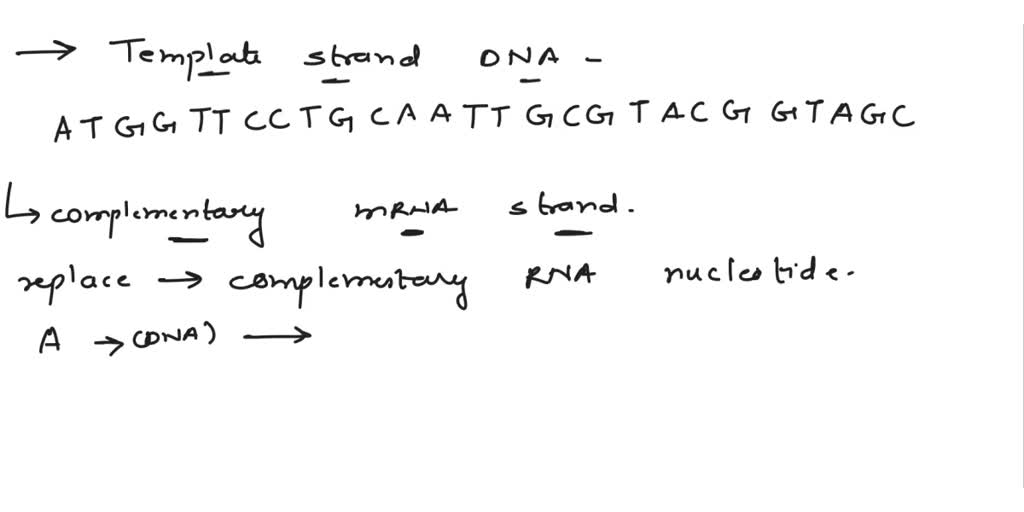 → Template strand DNA -
ATGGTTCCTGCAATTGCGTACGGTAGC
↳ complementary mRNA strand.
replace → complementary RNA nucleotide.
A → (DNA) →